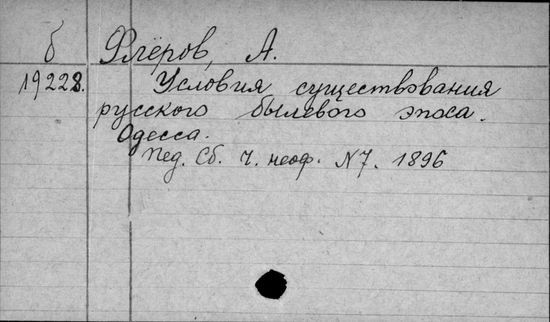 б Флёров, А.
19228. Условия существования
русского былевого эпоса.
Одесса.
Пед. Сб. Ч. неоф. N7. 1896